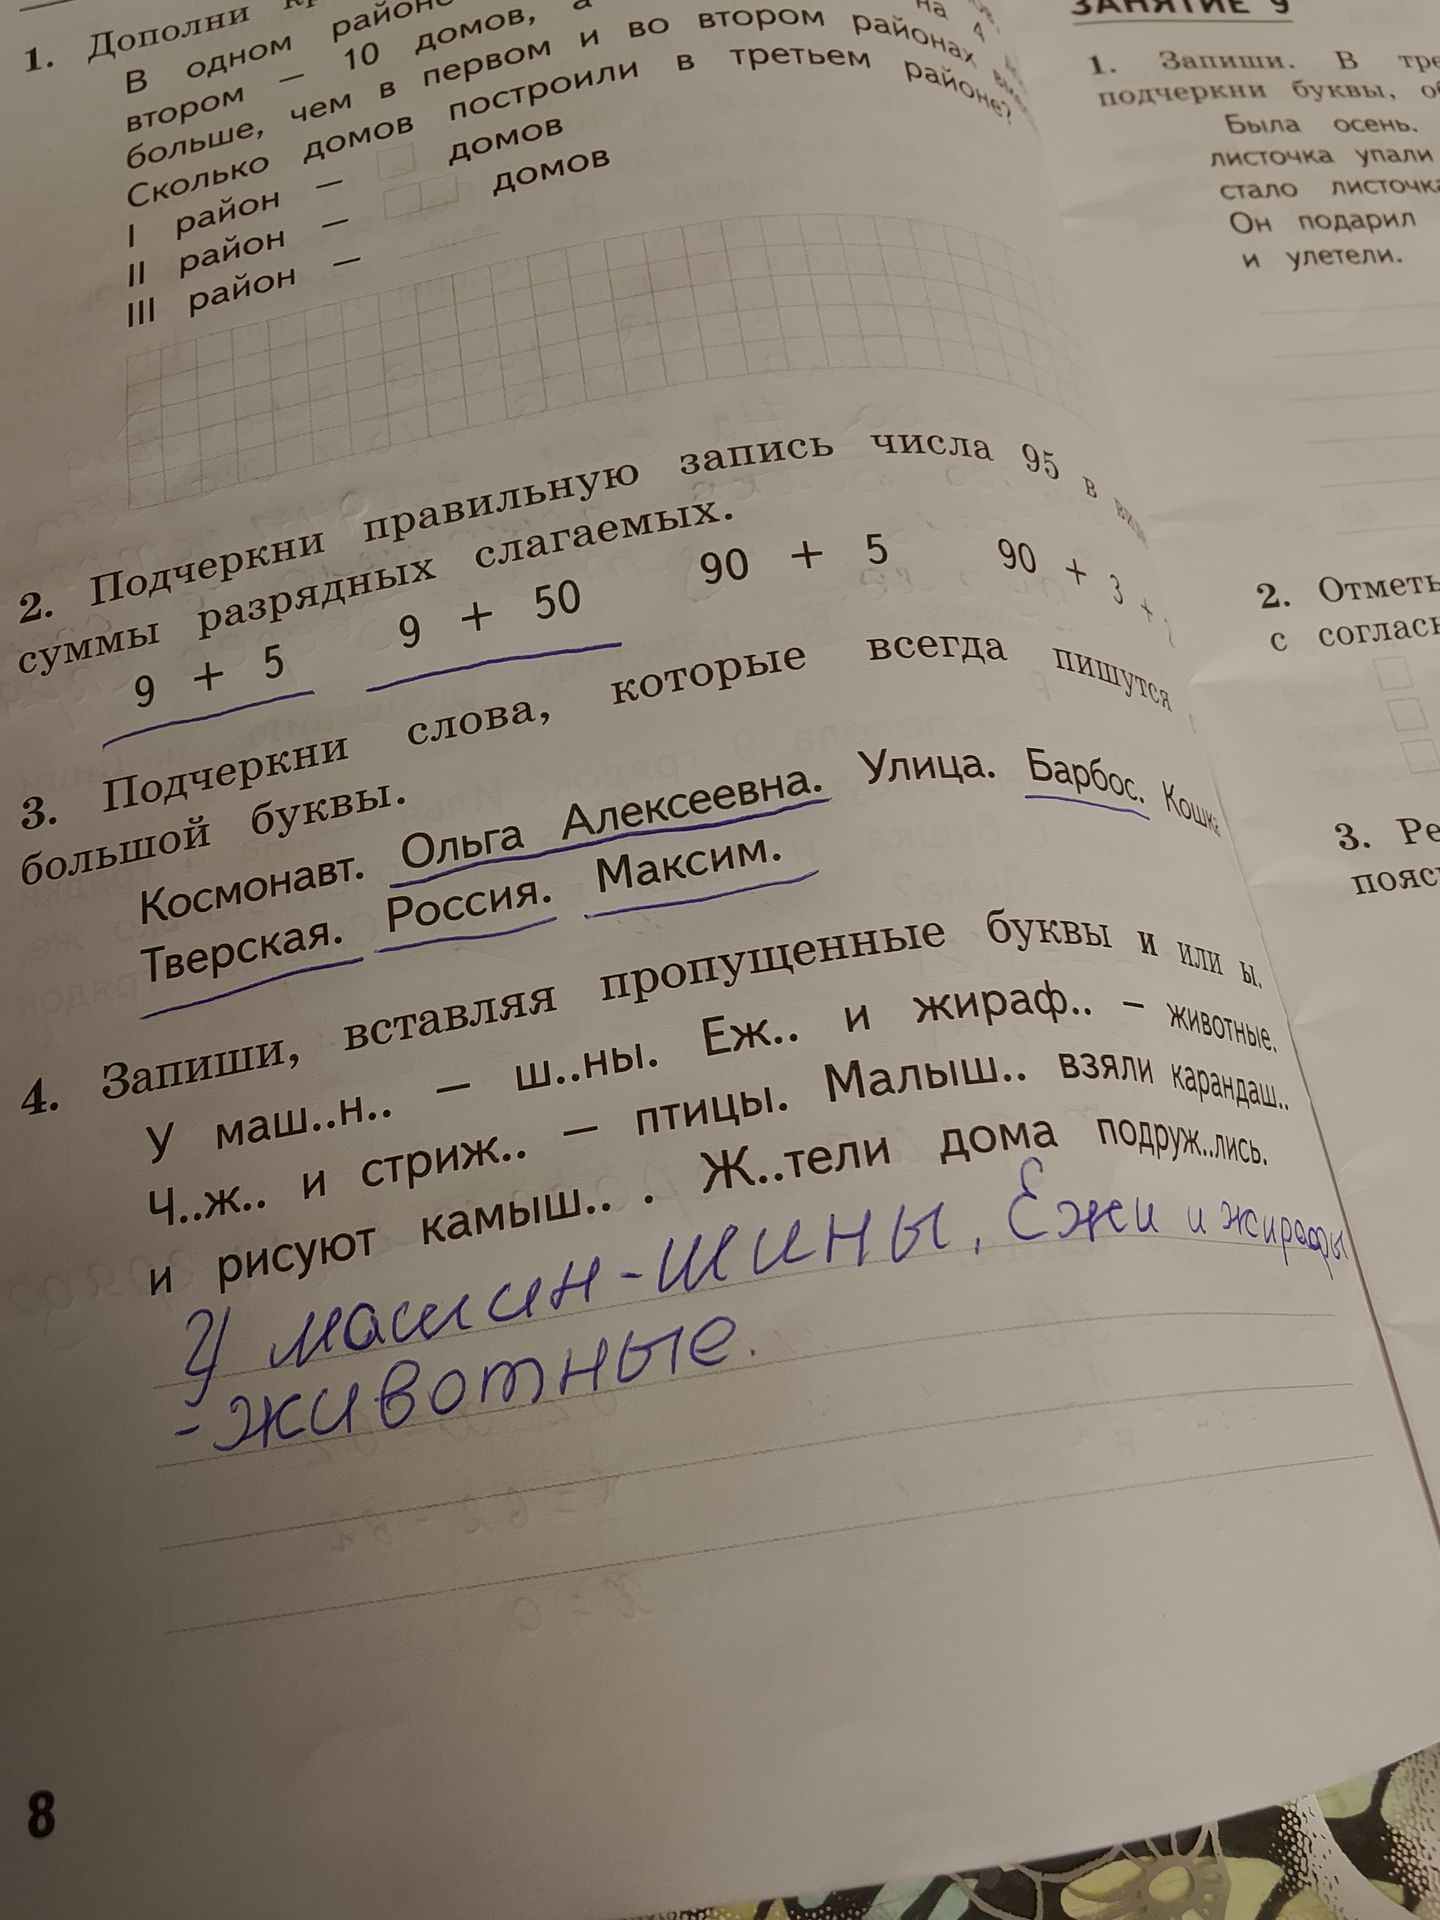 1. Дополни
В одном районе
втором — 10 домов, а на 4
больше, чем в первом и во втором районах
Сколько домов построили в третьем районе?
I район — домов
II район — домов
III район —
2. Подчеркни правильную запись числа 95 в
суммы разрядных слагаемых.
9 + 5 9 + 50 90 + 5 90 + 3 +
3. Подчеркни слова, которые всегда пишутся
большой буквы.
Космонавт. Ольга Алексеевна. Улица. Барбос. Кошка
Тверская. Россия. Максим.
4. Запиши, вставляя пропущенные буквы и или ы.
У маш..н.. — ш..ны. Еж.. и жираф.. – животные.
Ч..ж.. и стриж.. — птицы. Малыш.. взяли карандаш..
и рисуют камыш.. . Ж..тели дома подруж..лись.
У машин-шины, Ежи и жирафы
-животные.
8
ЗАНЯТИЕ 9
1. Запиши. В
подчеркни буквы,
Была осень.
листочка упали
стало
Он подарил
и улетели.
2.
с
3.